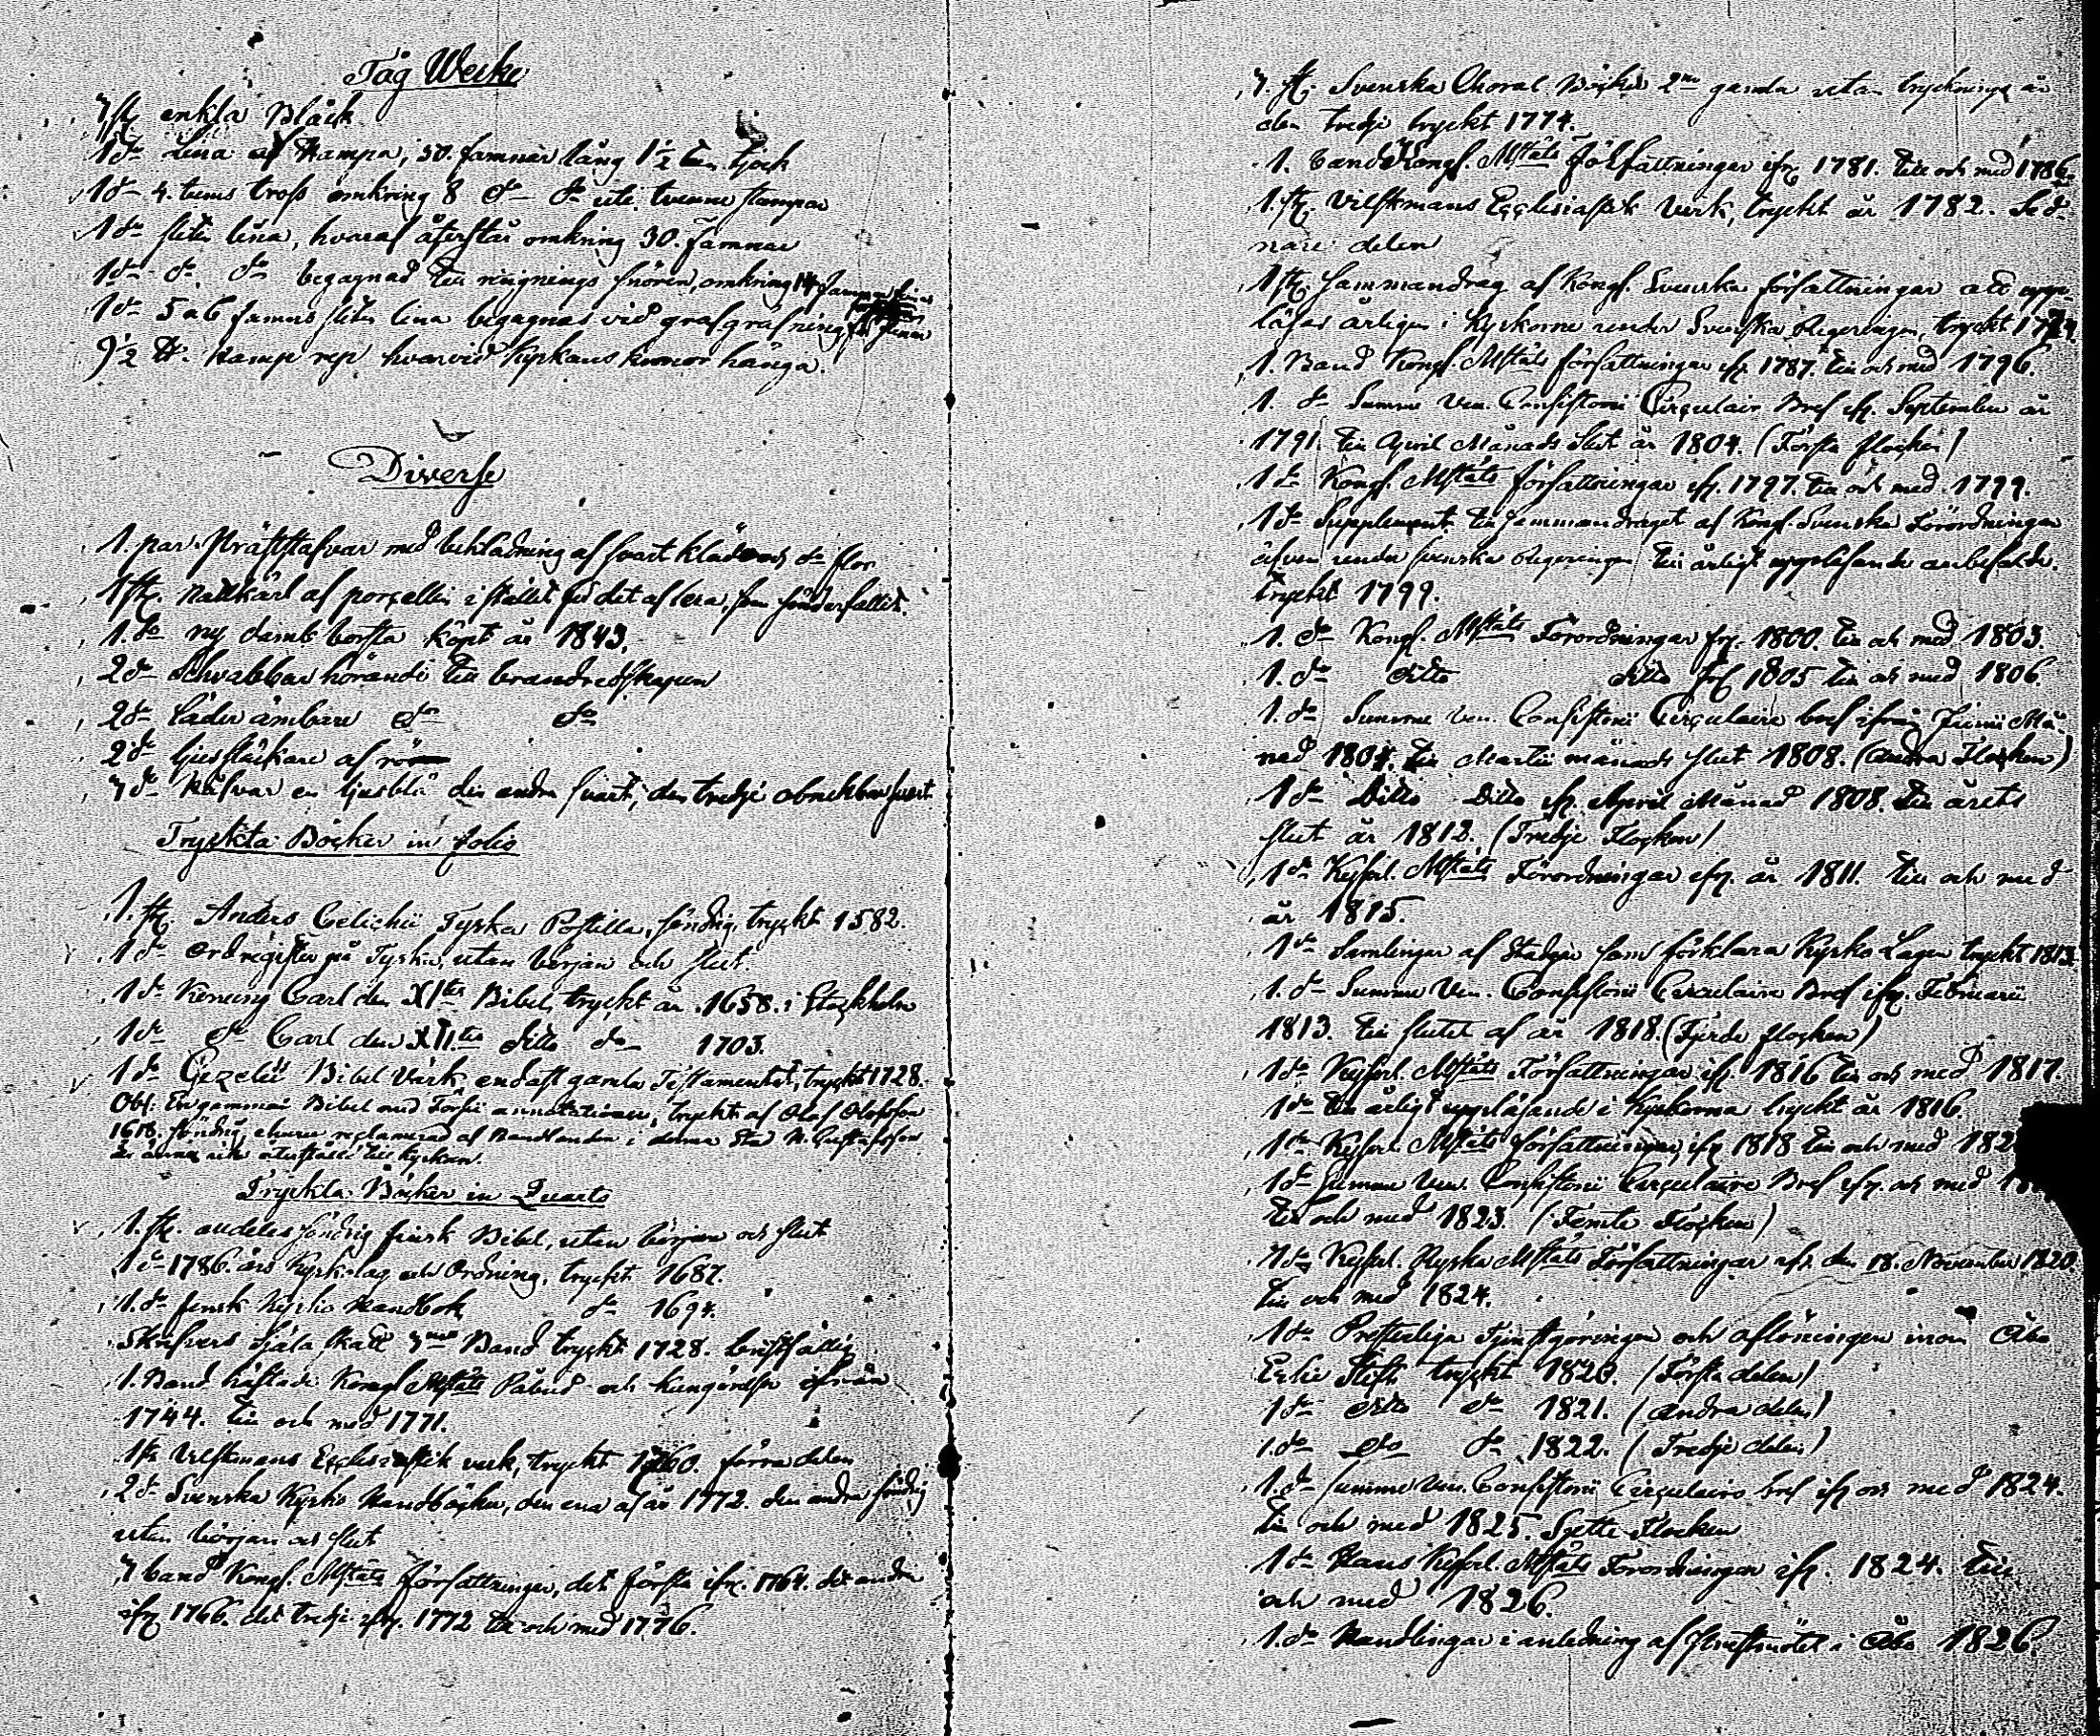 Tåg Werke
3 st. enkla Bläck
1 do Lina af Hampa, 30. famnar lång 1 1/2 tum tjock
1 do 4. tums tross omkring 8 do do ute tvenne stampar
1 do sliten lina, hvaraf återstår omkring 30. famnar
1 do do do begagnad till ringnings snören, omkring 14 famnar
1 do 5 a 6 famns sliten lina begagnas vid grafgräfning
9 1/2 ℔. Hamp rep hvarvid Kyrkans kronor hänga.
Diverse
1. par Präststafvar med beklädning af svart kläde och do flor
1 st. Nattkärl af porcellin i stället för det af lera, som sönderfallit.
1. do ny damb borsta köpt år 1843.
2 do Schvabbar hörande till brandredskapen
2 do Läder ämbare do do
2 do ljussläckare af rör
3 do Håfvar en ljusblå den andra svart, den tredje obrukbar svart
Tryckta Böcker in folio
1. st. Anders Celichii Tyska Postilla, söndrig, tryckt 1582.
1 do Ordregister på Tyska, utan början och slut.
1 do Konung Carl den XI:tes Bibel, tryckt år 1658. i Stockholm
1 do do Carl den XII:tes ditto do 1703.
1 do Gezelii Bibel Värk, endast gamla Testamentet, tryckt 1728.
Obs: En gammal Bibel med Försii annotationer, tryckt af Olof Olofsson
1618. söndrig, ehuru reglamerad af Handlanden i denna Stad N. Gustafsson
är ännu icke återställd till Kyrkan.
Tryckta Böcker in Quarto
1. st. andeles söndrig finsk Bibel, utan början och slut
1 do 1786. års Kyrkolag och Ordning, tryckt 1687.
1. do finsk Kyrko Handbok do 1694.
Skrifvers Själa Skatt 3ne Band tryckt 1728. bristfällig
1. Band häftade Kongl. Mstäts Påbud och kungörelser ifrån
1744. till och med 1771.
1 st. Vilskmans Ecclesiastik verk, tryckt 1760. förra delen
2 do Svenska Kyrko Handböcker, den ena af år 1772. den andra söndrig
utan början och slut
3 band Kongl. Mstäts författningar, det första ifr. 1764. det andra
ifr. 1766. det tredje ifr. 1772 till och med 1776.
3. st. Svenska Choral Böcker 2ne gamla utan tryckninge år
den tredje tryckt 1774.
1. band Kongl. Mstäts Författningar ifr. 1781. till och med 1786.
1. st. Vilskmans Ecclesiastik Verk, tryckt år 1782. Sed-
nare delen
1 st. Sammandrag af Kongl. Svenska författningar att upp-
läsas årligen i Kyrkorne under Svenska Regeringen, tryckt
1. Band Kongl. Mstäts författningar ifr. 1787. till och med 1796.
1. do Summe Ven. Consistorii Circulair Bref ifr. September år
1791. till April Månads slut år 1804. (Första flocken)
1 do Kongl. Mstäts författningar ifr. 1797. till och med 1799.
1 do Supplement till Sammandraget af Kongl. Svenska Förordningar
äfven under Svenska Regeringen till årligt uppläsande anbefalde.
tryckt 1799.
1. do Kongl. Mstäts Förordningar fr. 1800. till och med 1803.
1. do ditto ditto fr. 1805 till och med 1806.
1. do Summe Ven. Consistorii Circulaire bref ifrån Junii Må-
nad 1804. till Martii månads slut 1808. (Andra Flocken)
1 do Ditto Ditto ifr. April Månad 1808. till årets
slut år 1812. (Tredje Flocken)
1 do Kejserl. Mstäts Förordningar ifr. år 1811. till och med
år 1815.
1 do Samlingar af Stadgar som förklara Kyrko Lagen tryckt 1813.
1. do Summe Ven. Consistorii Circulaire Bref ifr. Februarii
1813. till slutet af år 1818. (Fjerde flocken)
1 do Kejserl. Mstäts Författningar ifr. 1816 till och med 1817.
1 do till årligt uppläsande i Kyrkorna tryckt år 1816.
1 do Kejserl. Mstäts författningar, ifr. 1818 till och med 182
1 do Summe Ven. Consistorii Circulaire Bref ifr. och med
till och med 1823. (Femte Flocken)
1 do Kejserl. Ryska Mstäts Författningar ifr. den 18. November 1820.
till och med 1824.
1 do Presterliga Tjenstgöringen och aflöningen inom Åbo
Erke Stift tryckt 1820. (Första delen)
1 do ditto do 1821. (Andra delen)
1. do do do 1822. (Tredje delen)
1. do Summe Ven. Consistorii Circulaire bref ifr. och med 1824.
till och med 1825. Sjette Flocken
1 do Hans Kejserl. Mstäts Förordningar ifr. 1824. till
och med 1826.
1. do Handlingar i anledning af Prestmötet i Åbo 1826.